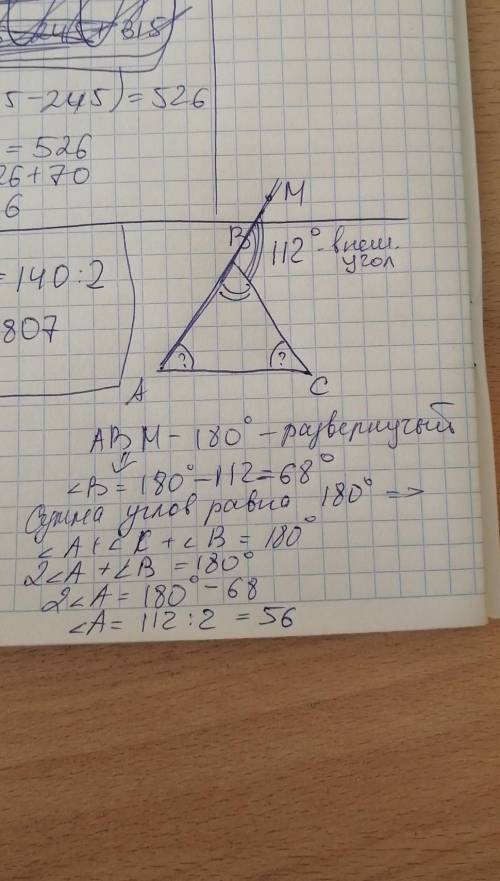 5-245) = 526
= 526
26+70
6
= 140:2
807
M
B
112° - внеш.
угол
?
?
A
C
ABM - 180° - развернучый
∠B = 180° - 112 = 68°
Сумма углов равна 180° =>
∠A + ∠C + ∠B = 180°
2∠A + ∠B = 180°
2∠A = 180° - 68
∠A = 112 : 2 = 56